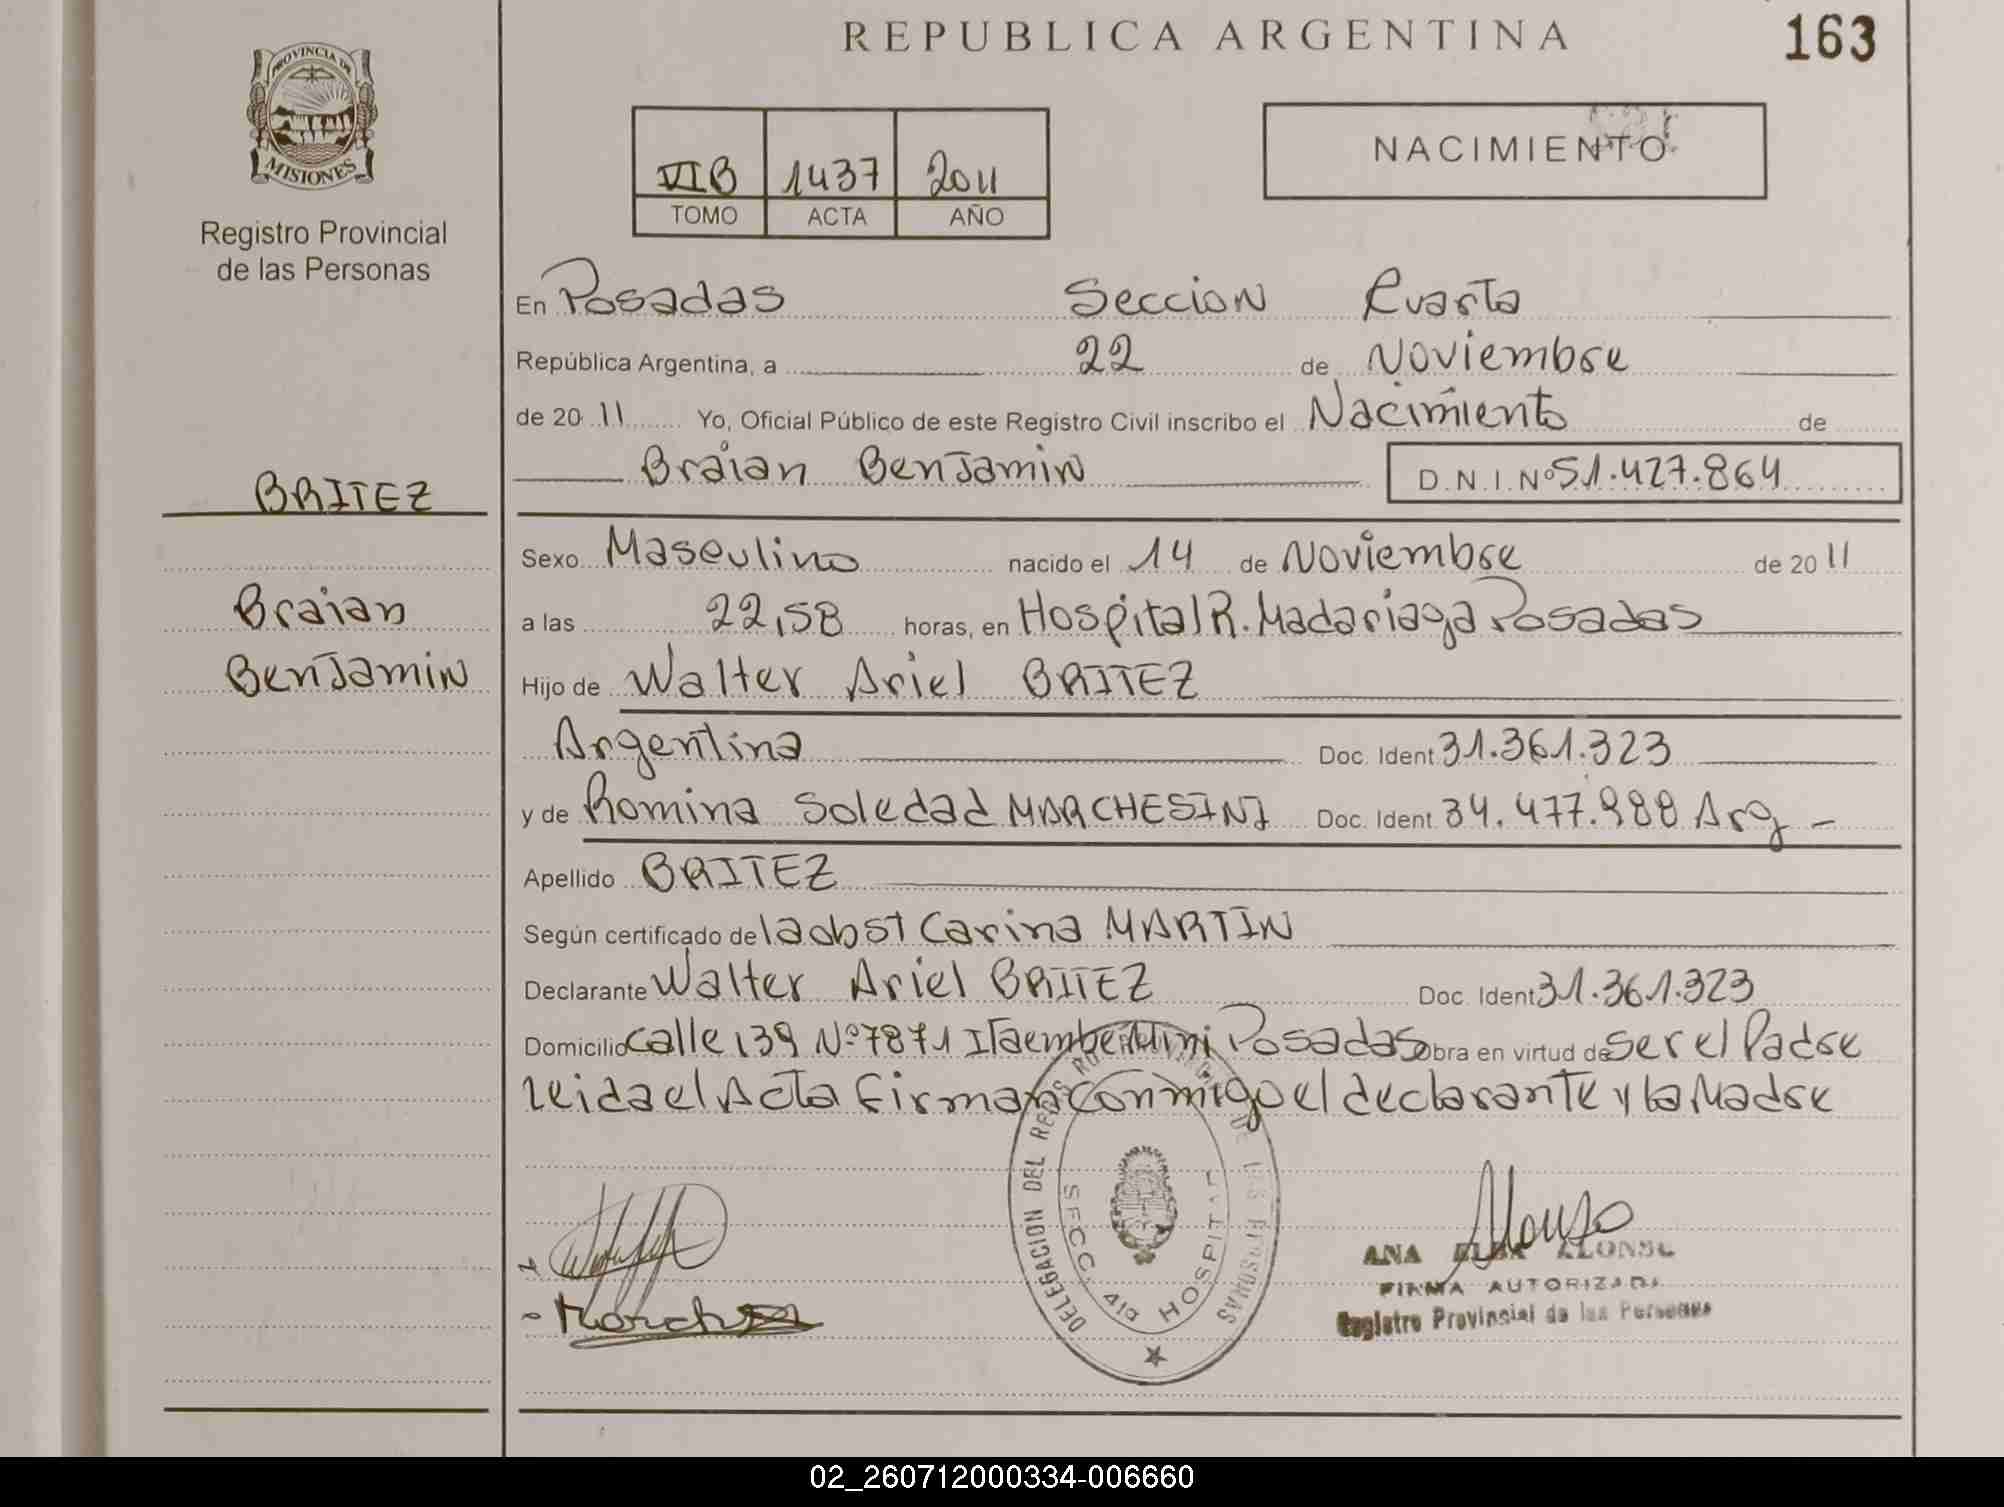 REPUBLICA ARGENTINA
163
PROVINCIA DE
MISIONES
Registro Provincial
de las Personas
VIB 1437 2011
TOMO ACTA AÑO
NACIMIENTO
En Posadas Seccion Cuarta
República Argentina, a 22 de Noviembre
de 2011 Yo, Oficial Público de este Registro Civil inscribo el Nacimiento de
Braian Benjamin D.N.I. Nº 51.427.864
BRITEZ
Braian
Benjamin
Sexo Masculino nacido el 14 de Noviembre de 2011
a las 22,58 horas, en Hospital R. Madariaga Posadas
Hijo de Walter Ariel BRITEZ
Argentina Doc. Ident 31.361.323
y de Romina Soledad MARCHESINI Doc. Ident. 34.477.988 Arg -
Apellido BRITEZ
Según certificado de la obst Carina MARTIN
Declarante Walter Ariel BRITEZ Doc. Ident 31.361.323
Domicilio Calle 139 Nº 7871 Itaembe Mini Posadas Obra en virtud de ser el Padre
Leida el Acta Firman conmigo el declarante y la Madre
DELEGACION DEL REG. DE LAS PERSONAS
SECC. 4ta HOSPITAL
Alonso
ANA ELBA ALONSO
FIRMA AUTORIZADA
Registro Provincial de las Personas
02_260712000334-006660